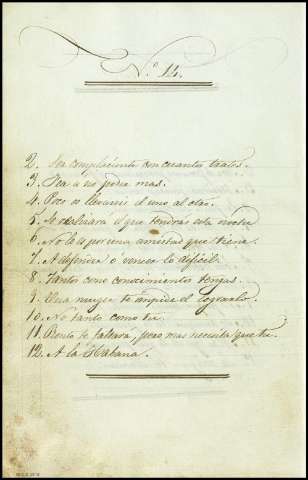 N.º 14.
2. Sea complaciente con cuantos trates.
3. Sea a no poder mas.
4. Poco os llevareis el uno al otro.
5. Se realizará el que tendras esta noche
6. No la es por una amistad que tiene.
7. A defenderse ó vencer lo dificil.
8. Tantos como conocimientos tengas.
9. Una muger te impide el lograrlo.
10. No tanto como tu.
11. Pronto te faltará, pero mas necesita que tu.
12. A la Habana.